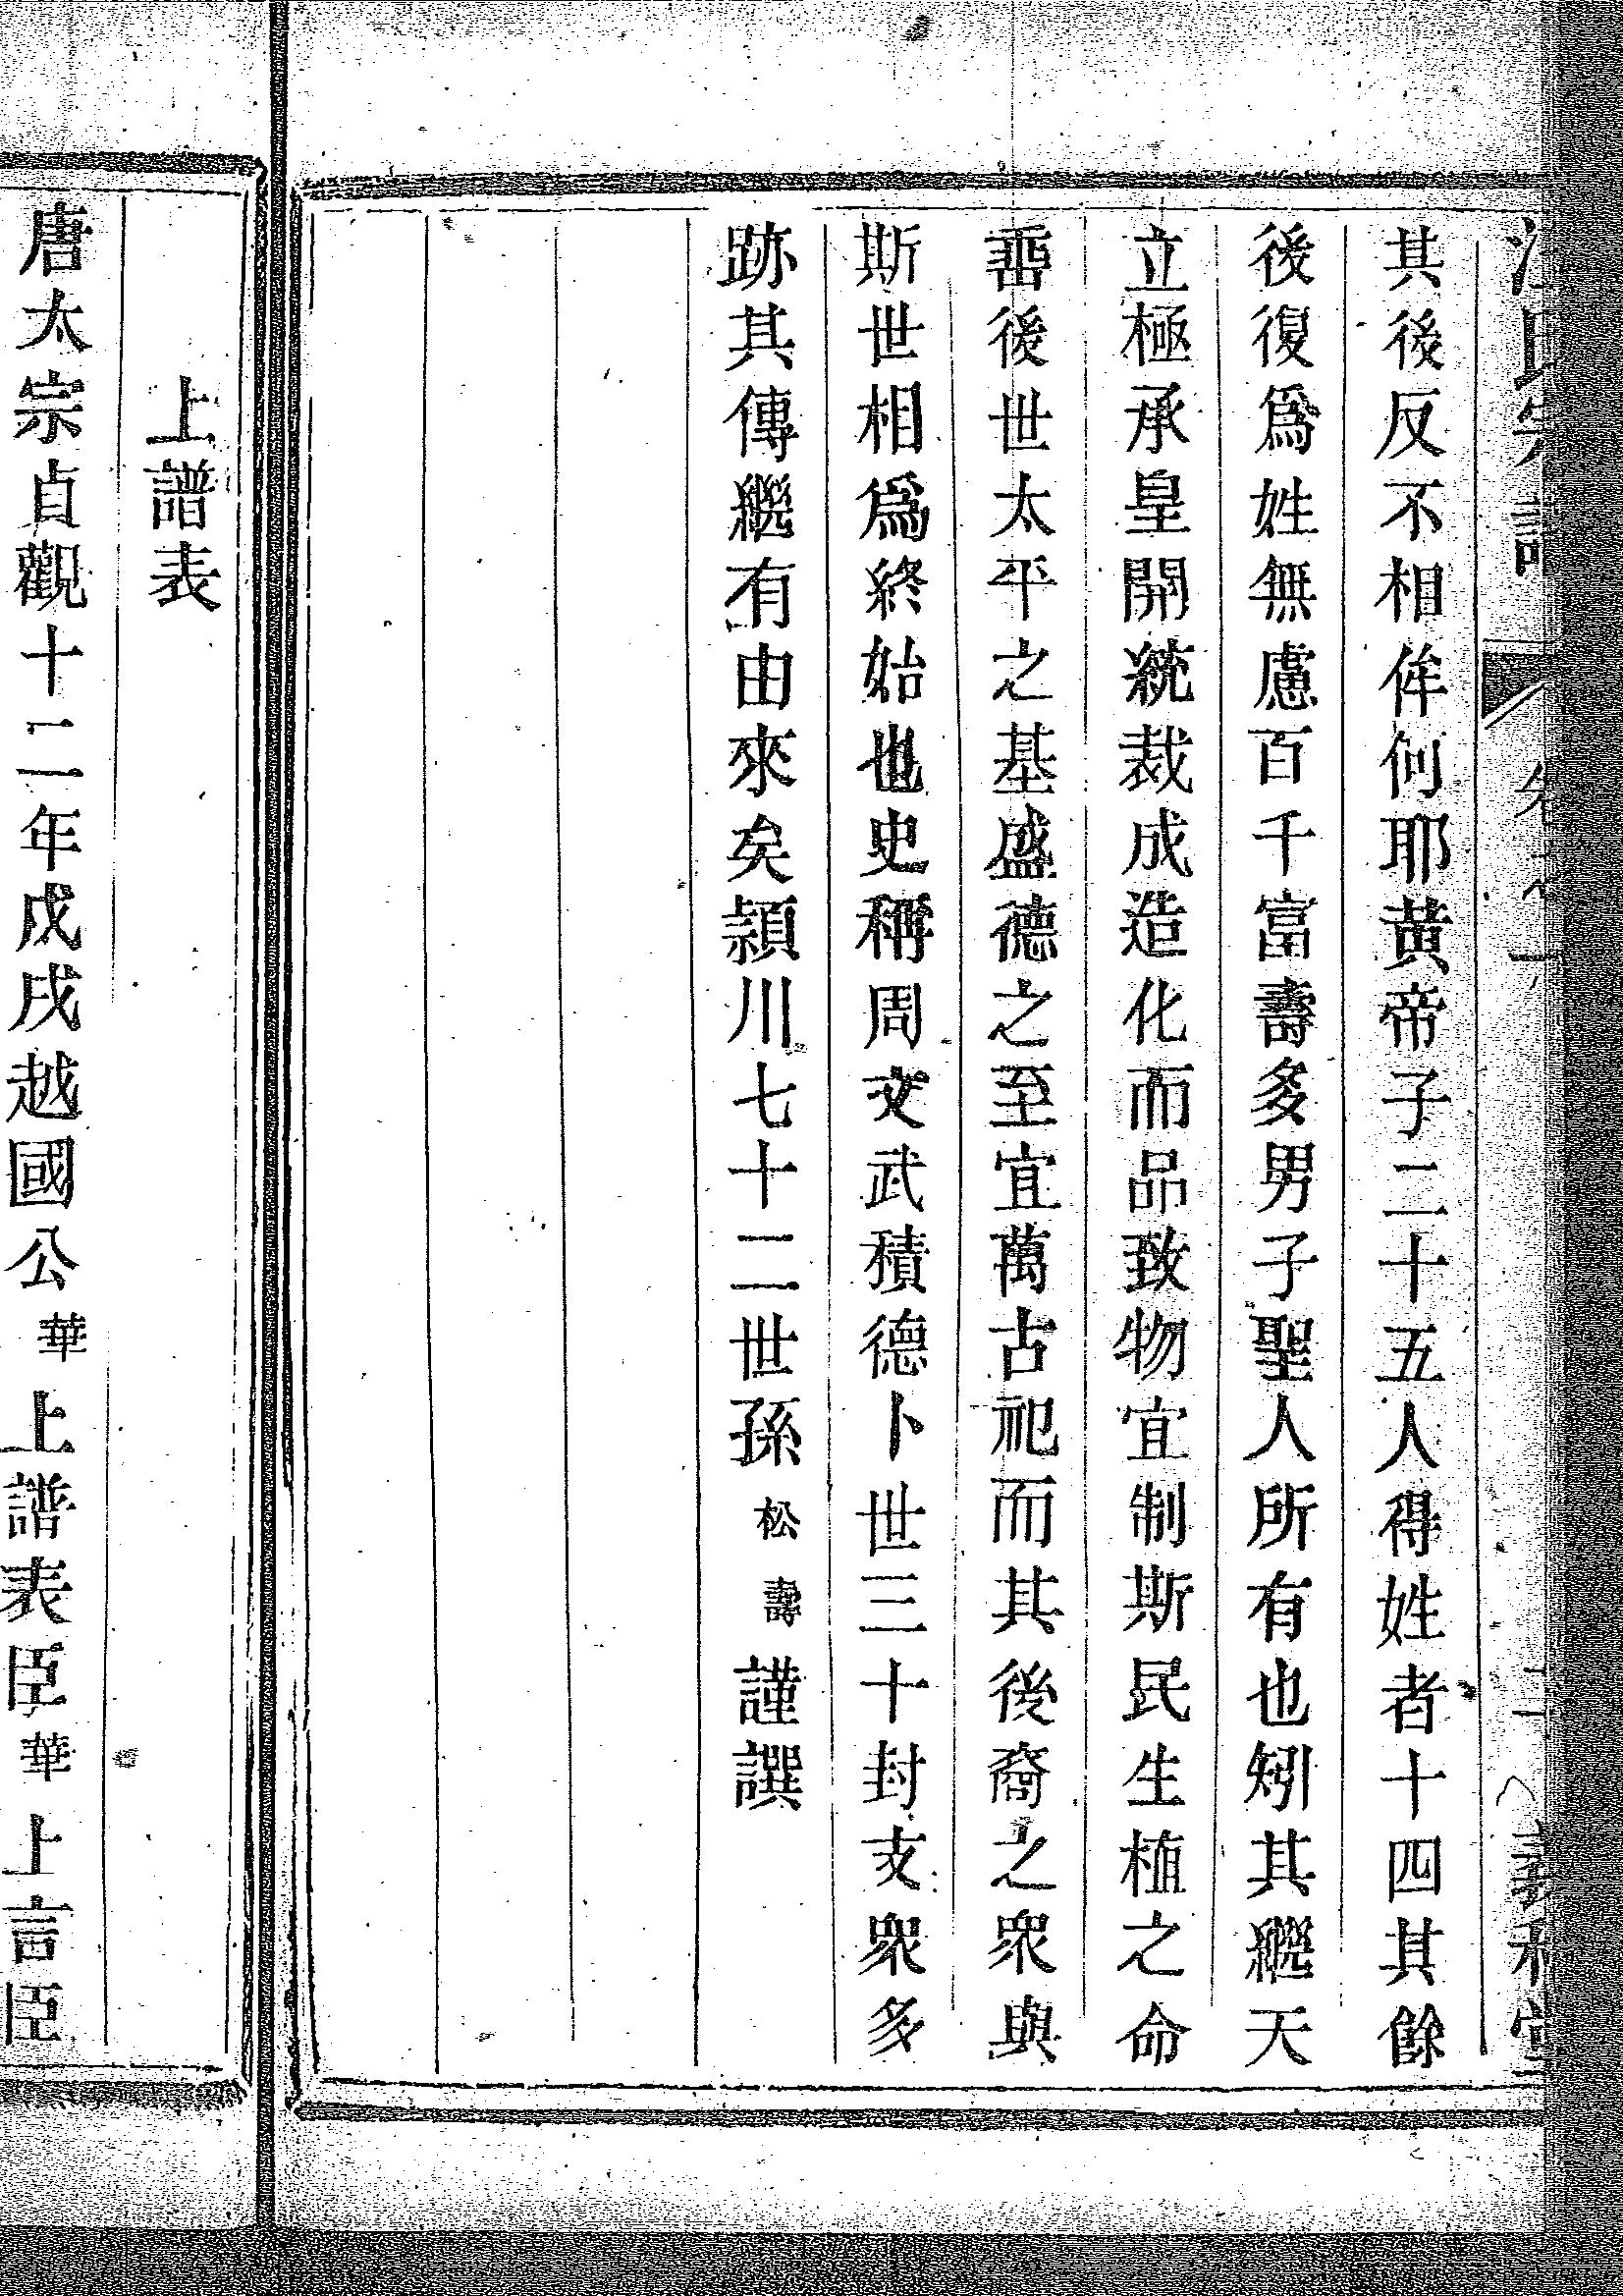 其後反不相侔何耶黃帝子二十五人得姓者十四其餘
後復爲姓無慮百千富壽多男子聖人所有也矧其繼天
立極承皇開統裁成造化而品致物宜制斯民生植之命
埀後世太平之基盛德之至宜萬古祀而其後裔之眾與
斯世相爲終始也史稱周文武積德卜世三十封支眾多
跡其傳繼有由來矣潁川七十二世孫松壽謹譔
上譜表
唐太宗貞觀十二年戊戌越國公華上譜表臣華上言臣